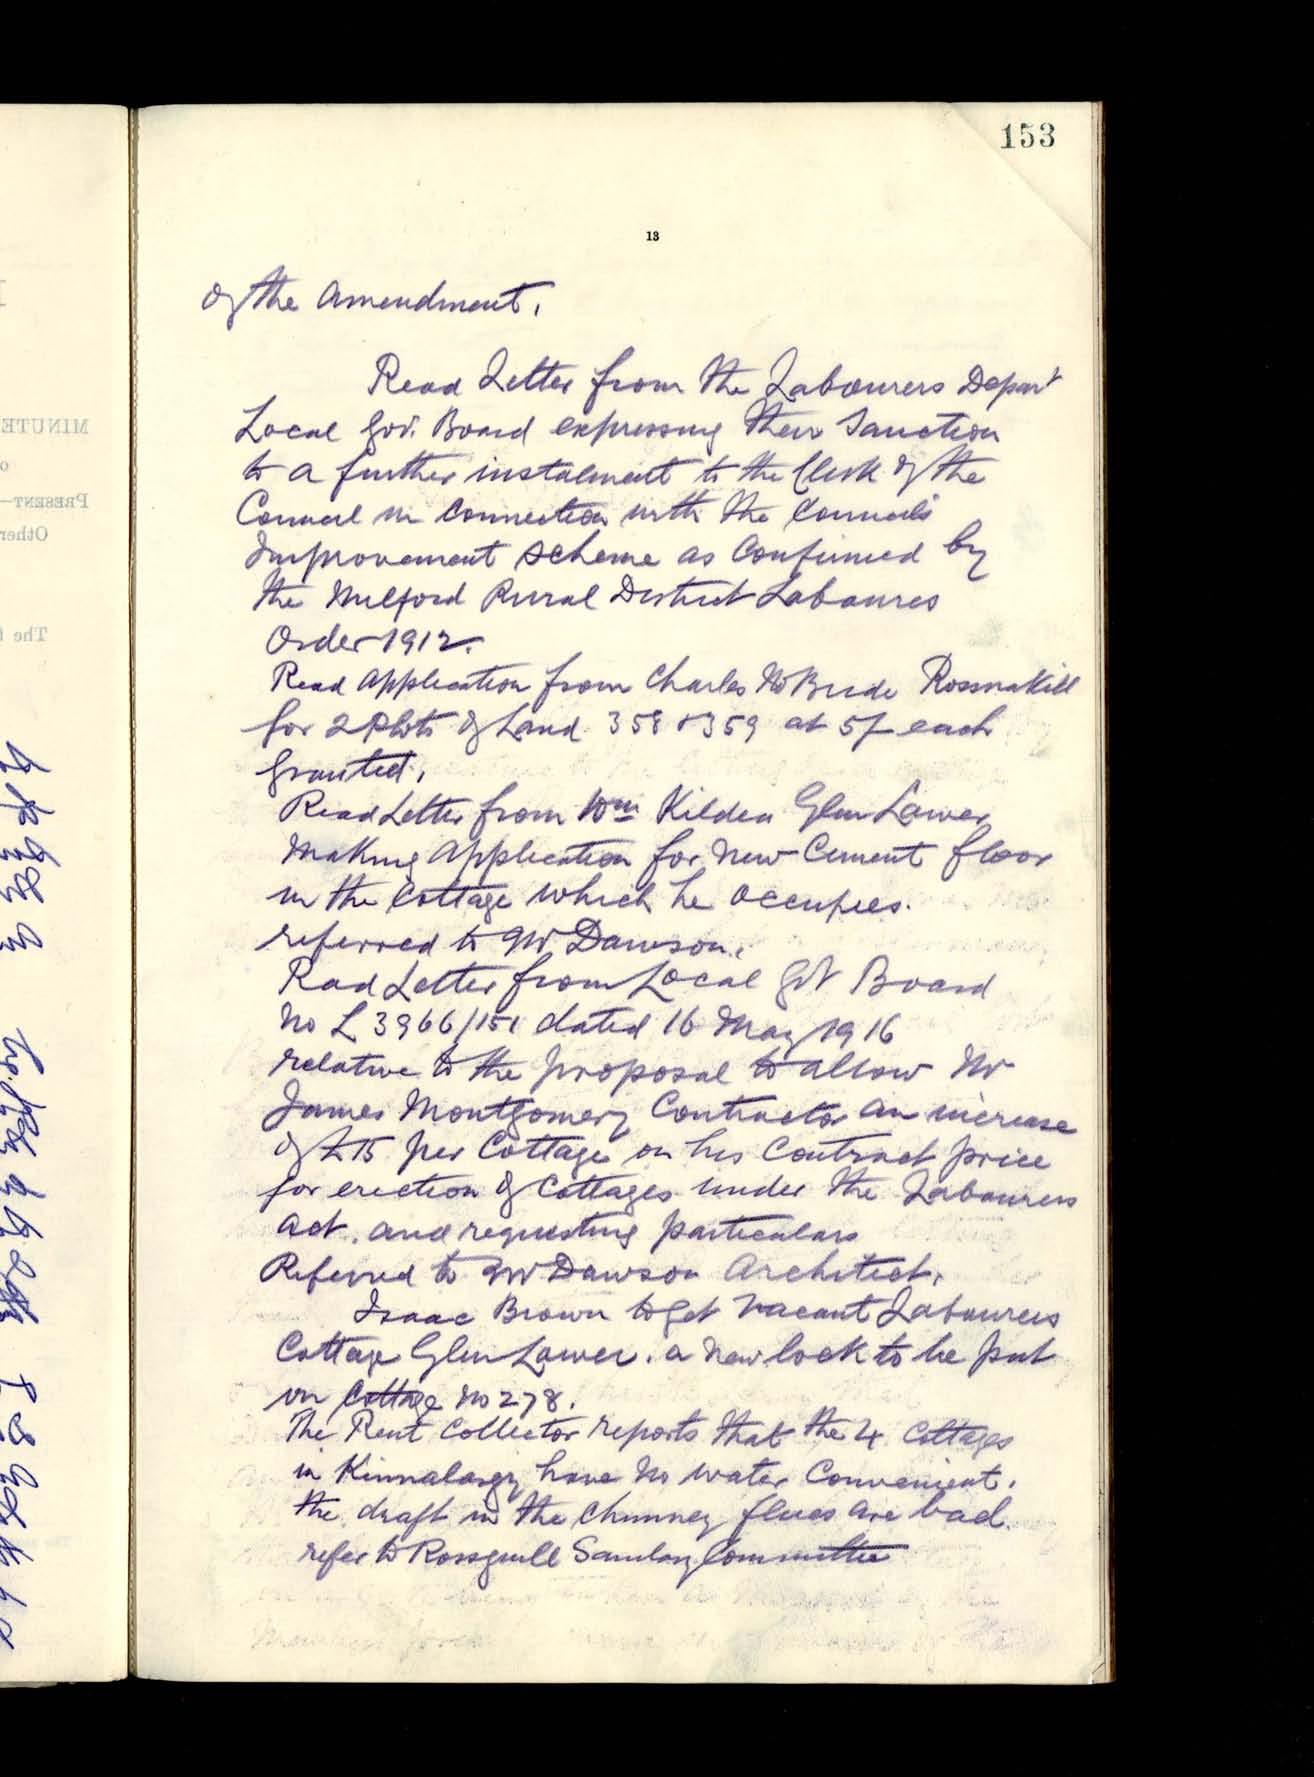 153
13
of the Amendment.
Read Letter from the Labourers Depart
Local Gov. Board expressing their Sanction
to a further instalment to the Clerk of the
Council in connection with the Council's
Improvement Scheme as Confirmed by
the Milford Rural District Labourers
Order 1912.
Read Application from Charles McBride Rosnakill
for 2 Plots of Land 358 & 359 at 5/- each
Granted.
Read Letter from Wm Kildea Glen Lower
Making Application for New Cement floor
in the Cottage which he occupies.
referred to Mr Dawson.
Read Letter from Local Gvt Board
No L 3966/151 dated 16 May 1916
relative to the proposal to allow Mr
James Montgomery Contractor an increase
of £15 per Cottage on his Contract price
for erection of Cottages under the Labourers
Act. and requesting particulars
Referred to Mr Dawson Architect.
Isaac Brown to get Vacant Labourers
Cottage Glen Lower. a New lock to be put
on Cottage No 278.
The Rent Collector reports that the 4 Cottages
in Kinnalargy have no water Convenient.
the draft in the Chimney flues are bad.
refer to Rossguill Sanitary Committee
MINUTE
PRESENT—
Other
The